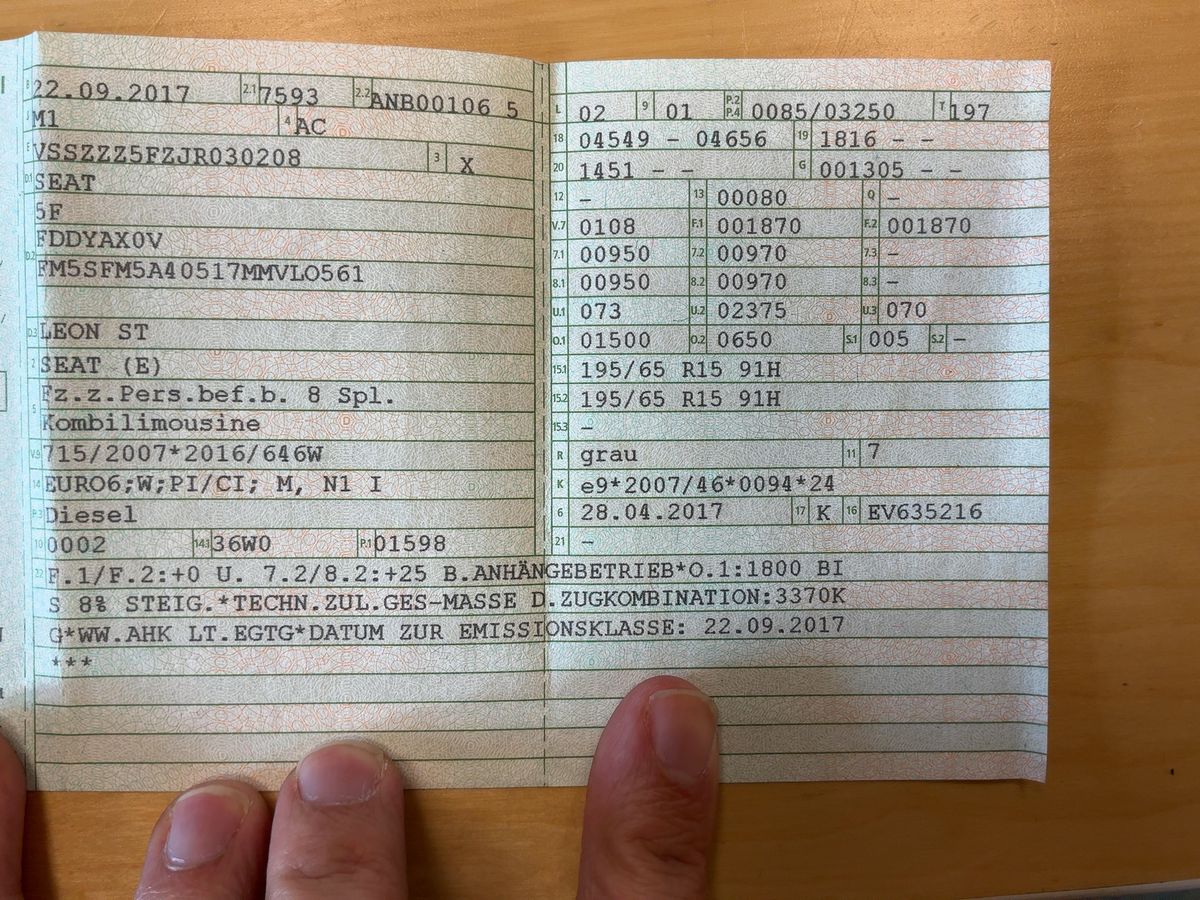 B 22.09.2017 2.1 7593 2.2 ANB00106 5
J M1 4 AC
E VSSZZZ5FZJR030208 3 X
D.1 SEAT
5F
D.2 FDDYAX0V
FM5SFM5A40517MMVLO561
D.3 LEON ST
2 SEAT (E)
5 Fz.z.Pers.bef.b. 8 Spl.
Kombilimousine
V.9 715/2007*2016/646W
14 EURO6;W;PI/CI; M, N1 I
P.3 Diesel
10 0002 14.1 36W0 P.1 01598
L 02 9 01 P.2 P.4 0085/03250 T 197
18 04549 - 04656 19 1816 - -
20 1451 - - G 001305 - -
12 - 13 00080 Q -
V.7 0108 F.1 001870 F.2 001870
7.1 00950 7.2 00970 7.3 -
8.1 00950 8.2 00970 8.3 -
U.1 073 U.2 02375 U.3 070
O.1 01500 O.2 0650 S.1 005 S.2 -
15.1 195/65 R15 91H
15.2 195/65 R15 91H
15.3 -
R grau 11 7
K e9*2007/46*0094*24
6 28.04.2017 17 K 16 EV635216
21 -
22 F.1/F.2:+0 U. 7.2/8.2:+25 B.ANHÄNGEBETRIEB*O.1:1800 BI
S 8% STEIG.*TECHN.ZUL.GES-MASSE D.ZUGKOMBINATION:3370K
G*WW.AHK LT.EGTG*DATUM ZUR EMISSIONSKLASSE: 22.09.2017
***